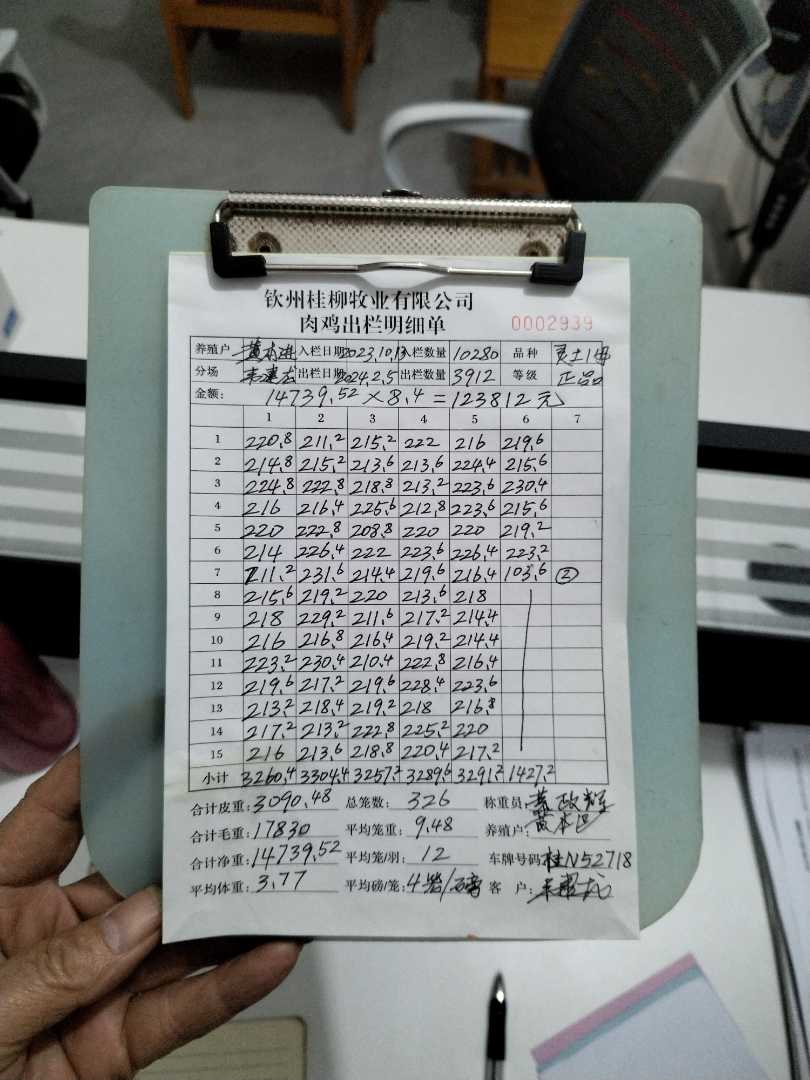 钦州桂柳牧业有限公司
肉鸡出栏明细单 0002939
养殖户 黄本进 入栏日期 2023.10.13 入栏数量 10280 品种 灵土1号
分场 出栏日期 2024.2.5 出栏数量 3912 等级 正品
金额: 14739.52×8.4=123812元
1 2 3 4 5 6 7
1 220.8 211.2 215.2 222 216 219.6
2 214.8 215.2 213.6 213.6 224.4 215.6
3 224.8 222.8 218.8 213.2 223.6 230.4
4 216 216.4 225.6 212.8 223.6 215.6
5 220 222.8 208.8 220 220 219.2
6 214 226.4 222 223.6 226.4 223.2
7 211.2 231.6 214.4 219.6 216.4 103.6 ②
8 215.6 219.2 220 213.6 218
9 218 229.2 211.6 217.2 214.4
10 216 216.8 216.4 219.2 214.4
11 223.2 230.4 210.4 222.8 216.4
12 219.6 217.2 219.6 228.4 223.6
13 213.2 218.4 219.2 218 216.8
14 217.2 213.2 222.8 225.2 220
15 216 213.6 218.8 220.4 217.2
小计 3260.4 3304.4 3257.2 3289.6 3291.2 1427.2
合计皮重: 3090.48 总笼数: 326 称重员:
合计毛重: 17830 平均笼重: 9.48 养殖户:
合计净重: 14739.52 平均笼/羽: 12 车牌号码: 桂N52718
平均体重: 3.77 平均磅/笼: 4笼/磅 客 户: